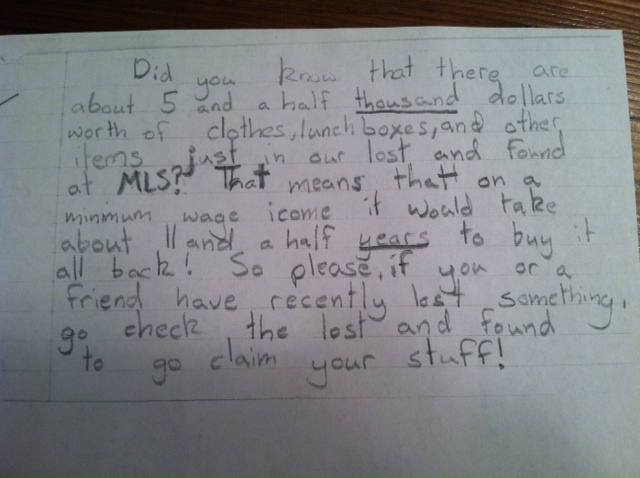 Did you know that there are
about 5 and a half thousand dollars
worth of clothes, lunch boxes, and other
items just in our lost and found
at MLS? That means thatt on a
minimum wage icome it would take
about 11 and a half years to buy it
all back! So please, if you or a
friend have recently lost something,
go check the lost and found
to go claim your stuff!